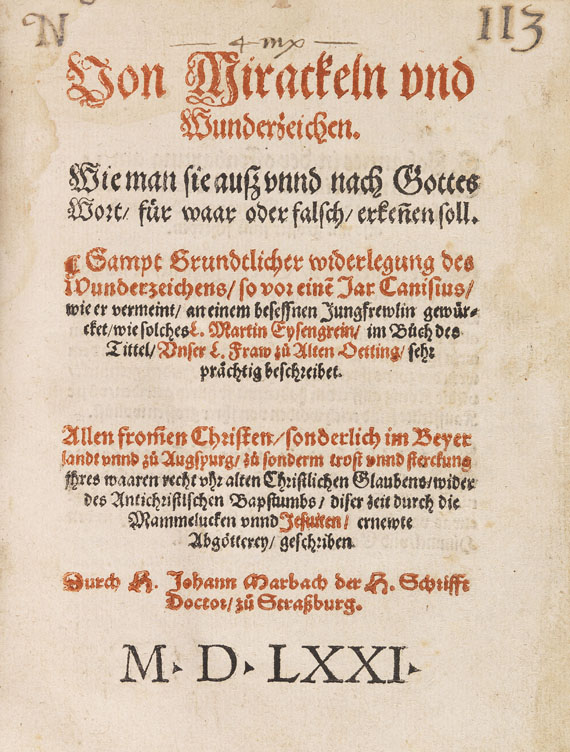 N
113
Von Mirackeln vnd
Wunderzeichen.
Wie man sie außz vnnd nach Gottes
Wort/ für waar oder falsch/ erkeñen soll.
¶ Sampt Grundtlicher widerlegung des
Wunderzeichens/ so vor einē Jar Canisius/
wie er vermeint/ an einem besessnen Jungfrewlin gewür-
cket/ wie solches L. Martin Eysengrein/ im Bůch des
Tittel/ Vnser L. Fraw zů Alten Oetting/ sehr
prächtig beschreibet.
Allen from̃en Christen/ sonderlich im Beyer
landt vnnd zů Augspurg/ zů sonderm trost vnnd sterckung
jhres waaren recht vhr alten Christlichen Glaubens/ wider
des Antichristischen Bapstumbs/ diser zeit durch die
Mammelucken vnnd Jesuiten/ ernewte
Abgötterey/ geschriben
Durch H. Johann Marbach der H. Schrifft
Doctor/ zů Straßburg.
M. D. LXXI.